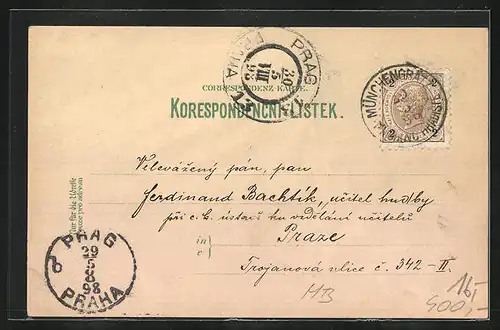 PRAG
PRAHA
30
5
III
98
CORRESPONDENZ-KARTE.
KORESPONDENČNÍ LÍSTEK.
MÜNCHENGRÄTZ
Nur für die Adresse
Velevážený pán, pan
Ferdinand Bachtík, učitel hudby
při c.k. ústavě ku vzdělání učitelů
in
v
Praze
Trojanová ulice č. 342-II.
PRAG
29
5
8
98
PRAHA
HB
16,-
400,-